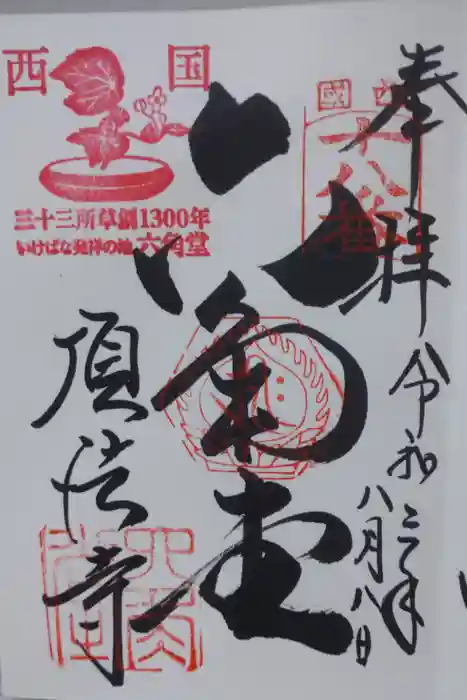 奉拝
令和三年
八月八日
西国
十八番
六角堂
頂法寺
西国
三十三所草創1300年
いけばな発祥の地 六角堂